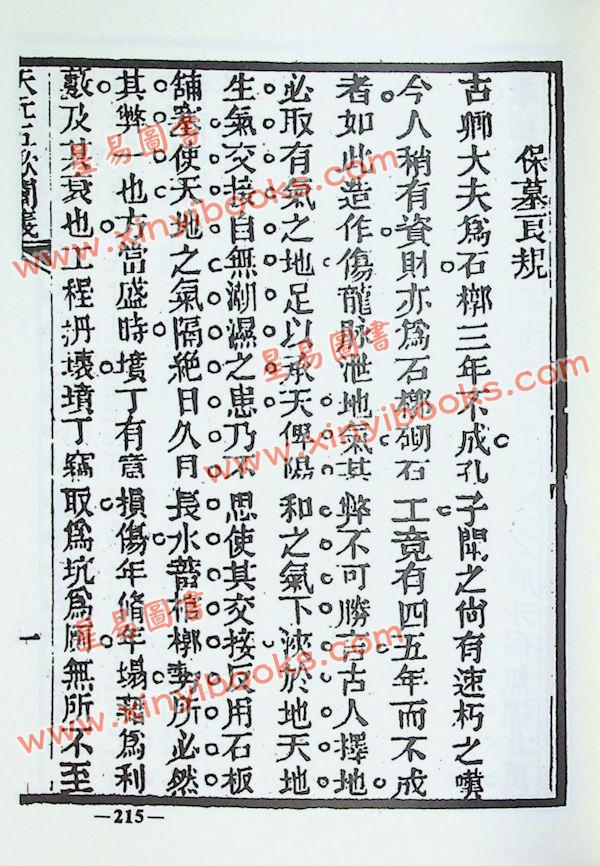 保墓良規
古卿大夫爲石槨三年不成孔子聞之尙有速朽之嘆
今人稍有資財亦爲石槨砌石工竟有四五年而不成
者如此造作傷龍脉泄地氣其弊不可勝言古人擇地
必取有氣之地足以承天俾陽和之氣下浹於地天地
生氣交接自無潮濕之患乃不思使其交接反用石板
舖塞使天地之氣隔絶日久月長水蓄棺槨勢所必然
其弊一也方當盛時墳丁有意損傷年脩年塌藉爲利
藪及其衰也工程坍壞墳丁竊取爲坑爲厠無所不至
天元五歌闡義
一
—215—
星易圖書
www.xinyibooks.com
星易圖書
www.xinyibooks.com
星易圖書
www.xinyibooks.com